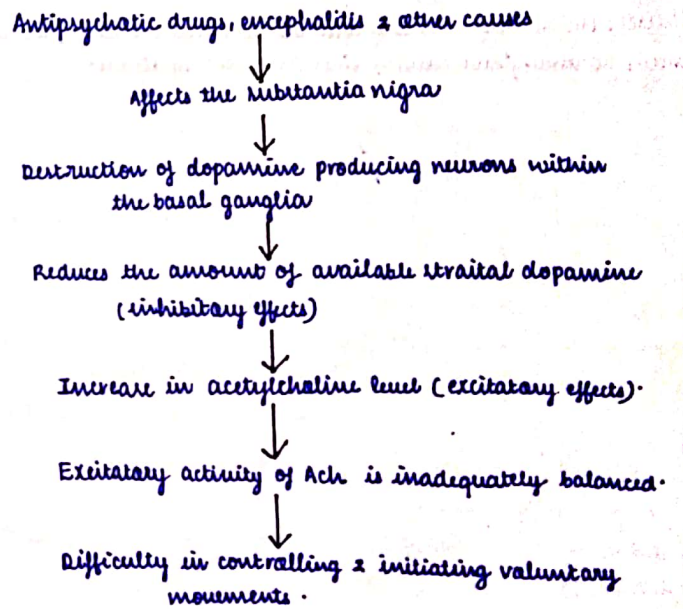 Antipsychatic drugs, encephalidis & other causes
Affects the substantia nigra
Destruction of dopamine producing neurons within
the basal ganglia
Reduces the amount of available straital dopamine
(inhibitary effects)
Increase in acetylcholine level (excitatary effects).
Excitatary activity of Ach is inadequately balanced.
Difficulty in controlling & initiating valuntary
movements.